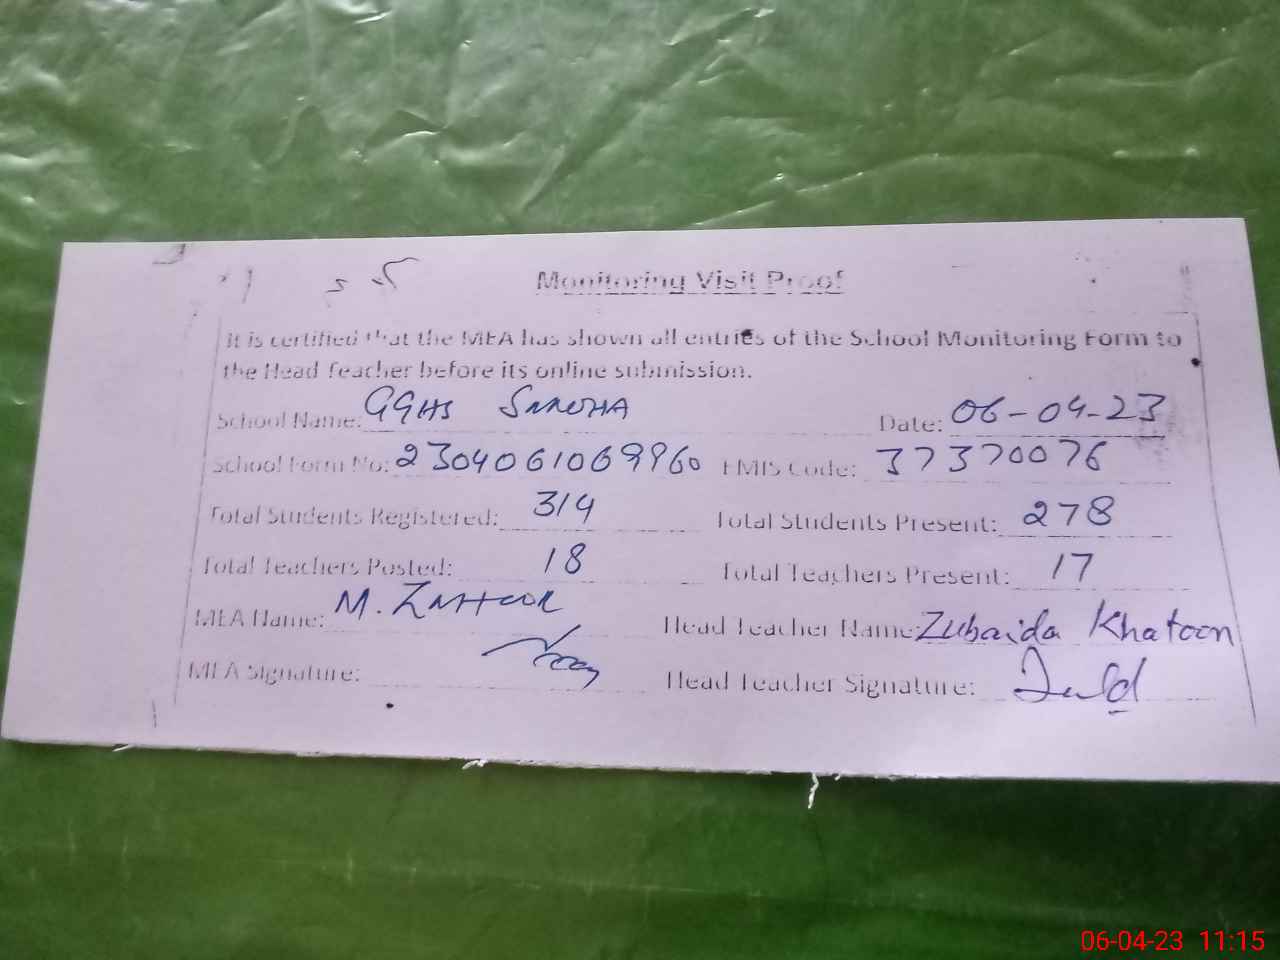 Monitoring Visit Proof
It is certified that the MEA has shown all entries of the School Monitoring Form to
the Head Teacher before its online submission.
School Name: GGHS Date: 06-04-23
School Form No: 2304061069960 EMIS Code: 37370076
Total Students Registered: 314 Total Students Present: 278
Total Teachers Posted: 18 Total Teachers Present: 17
MEA Name: M. ZAHOOR Head Teacher Name: Zubaida Khatoon
MEA Signature: Head Teacher Signature:
06-04-23 11:15